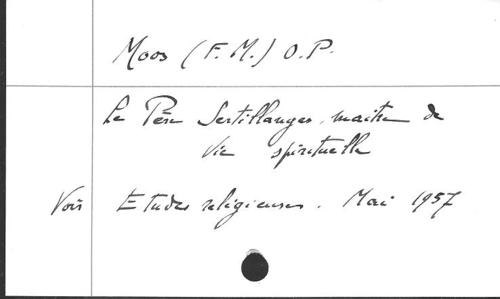 Moos (F. M.) O.P.
Le Père Sertillanges, maître de
vie spirituelle
Voir Etudes religieuses. Mai 1957